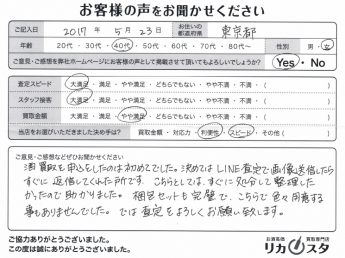 お客様の声をお聞かせください
ご記入日 2017年 5月 23日 お住いの都道府県 東京都
年齢 20代・30代・40代・50代・60代・70代・80代・90代 性別 男・女
ご意見・ご感想を弊社ホームページにお客様の声として掲載させて頂いてもよろしいでしょうか? Yes・No
査定スピード 大満足・満足・やや満足・どちらでもない・やや不満・不満・( )
スタッフ接客 大満足・満足・やや満足・どちらでもない・やや不満・不満・( )
買取金額 大満足・満足・やや満足・どちらでもない・やや不満・不満・( )
当店をお選びいただきました決め手は? 買取金額・対応力・利便性・スピード・その他( )
ご意見・ご感想などぜひお聞かせください
酒買取を申込をしたのは初めてでした。決めては LINE査定で画像送信したら
すぐに返信してくれた所です。こちらとしては、すぐに処分して整理し
たかったので助かりました。梱包セットも完璧で、こちらで色々用意する
事もありませんでした。では査定をよろしくお願い致します。
ご協力ありがとうございました。
この度は誠にありがとうございました。
お酒高価買取専門店
リカスタ